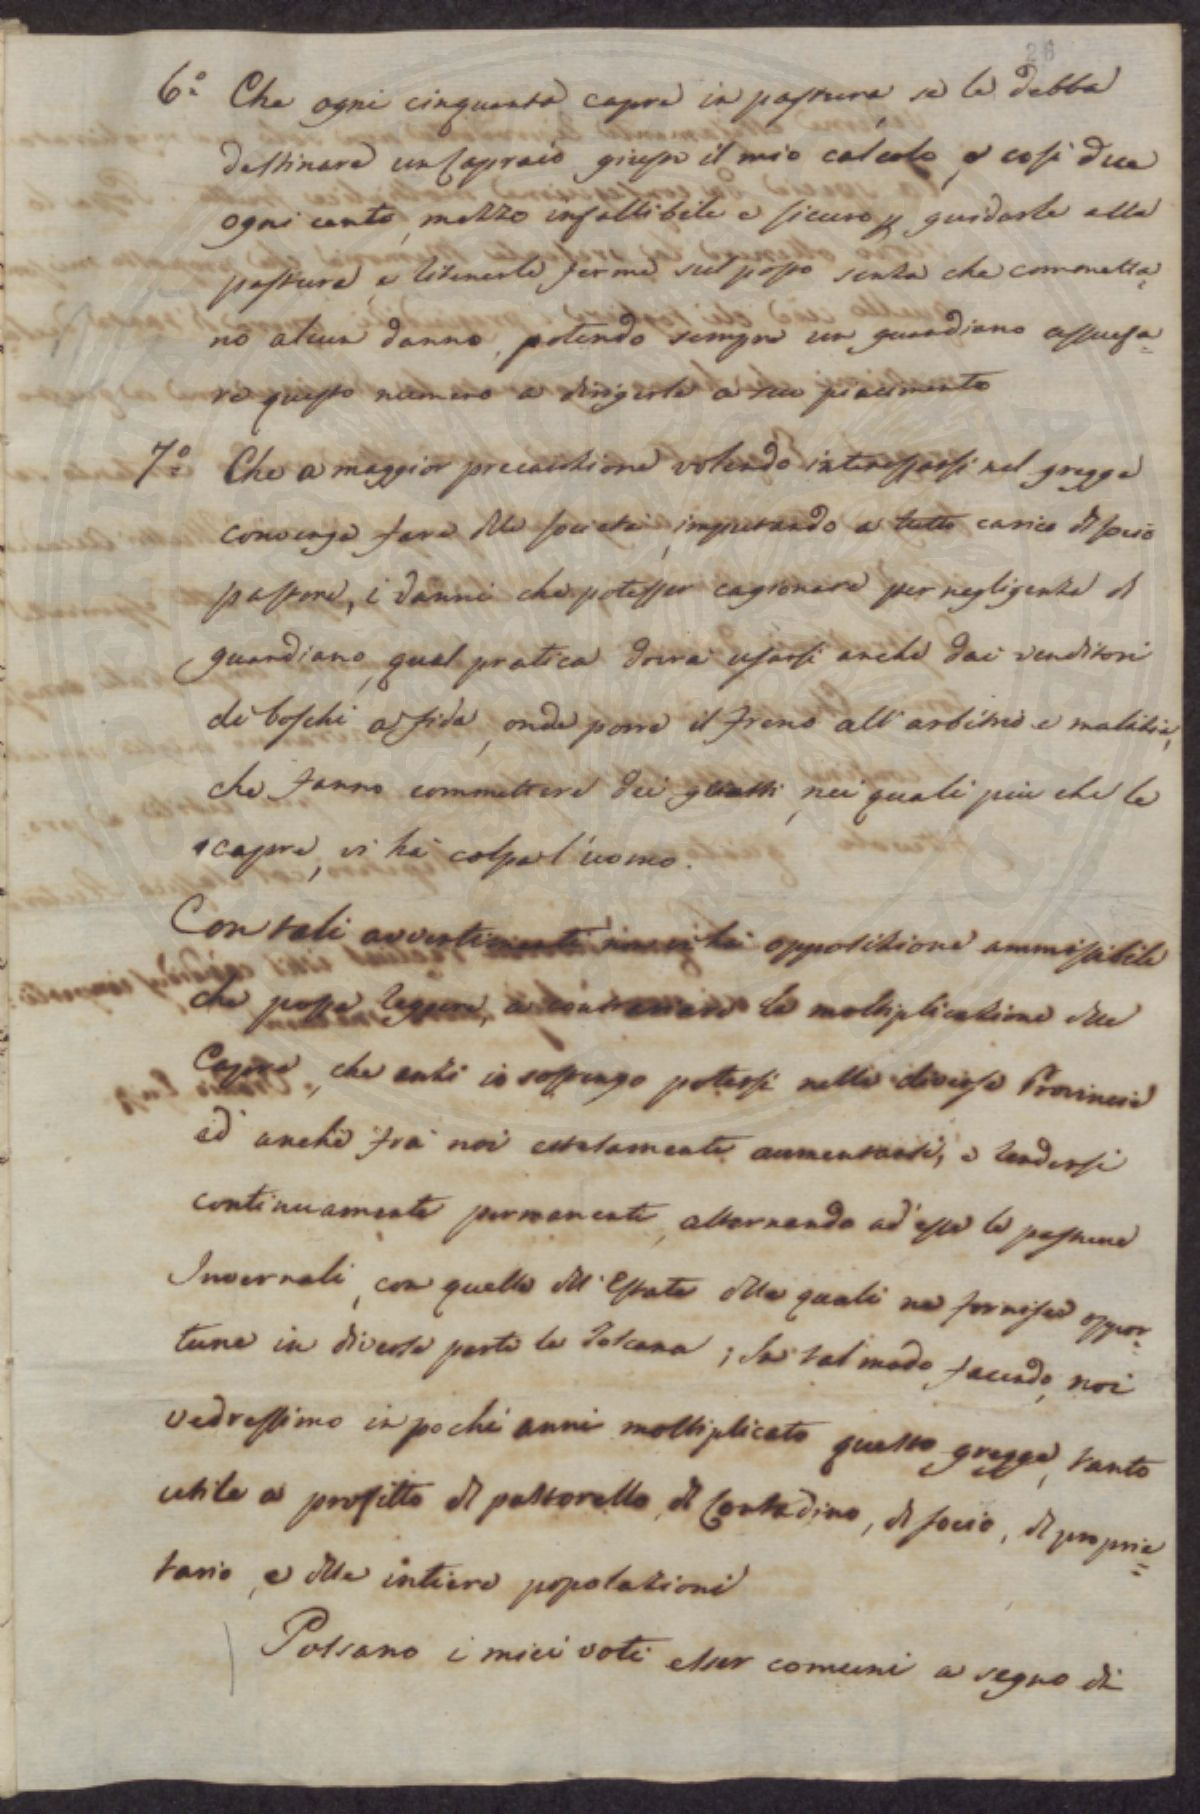 26
6.° Che ogni cinquanta capre in pastura, se le debba
destinare un Capraio giusto il mio calcolo, e così due
ogni cento, mezzo infallibile e sicuro p guidarle alla
pastura e ritenerle ferme sul posto senza che commetta=
no alcun danno, potendo sempre un guardiano assuefa=
re questo numero a dirigerle a suo piacimento
7.° Che a maggior precauzione volendo interessarsi nel gregge
convenga fare delle società, imputando a tutto carico del socio
pastore, i danni che potesser cagionare per negligenza del
guardiano, qual pratica dovrà usarsi anche dai venditori
di boschi a fida, onde porre il freno all'arbitrio e malizia,
che fanno commettere dei guasti, nei quali più che le
capre, vi ha colpa l'uomo.
Con tali avvertimenti non vi hà opposizione ammissibile
che possa reggere, a contrariare la moltiplicazione delle
Capre, che anzi io sostengo potersi nelle diverse Provincie
ed anche frà noi estesamente aumentarsi, e rendersi
continuamente permanenti, alternando ad esse le pasture
Invernali, con quelle dell'Estate delle quali ne fornisce oppor=
tune in diverse parte la Toscana; In tal modo facendo, noi
vedressimo in pochi anni moltiplicato questo gregge, tanto
utile a profitto del pastorello, del Contadino, del socio, del proprie=
tario, e delle intiere popolazioni
Possano i miei voti esser comuni a segno di